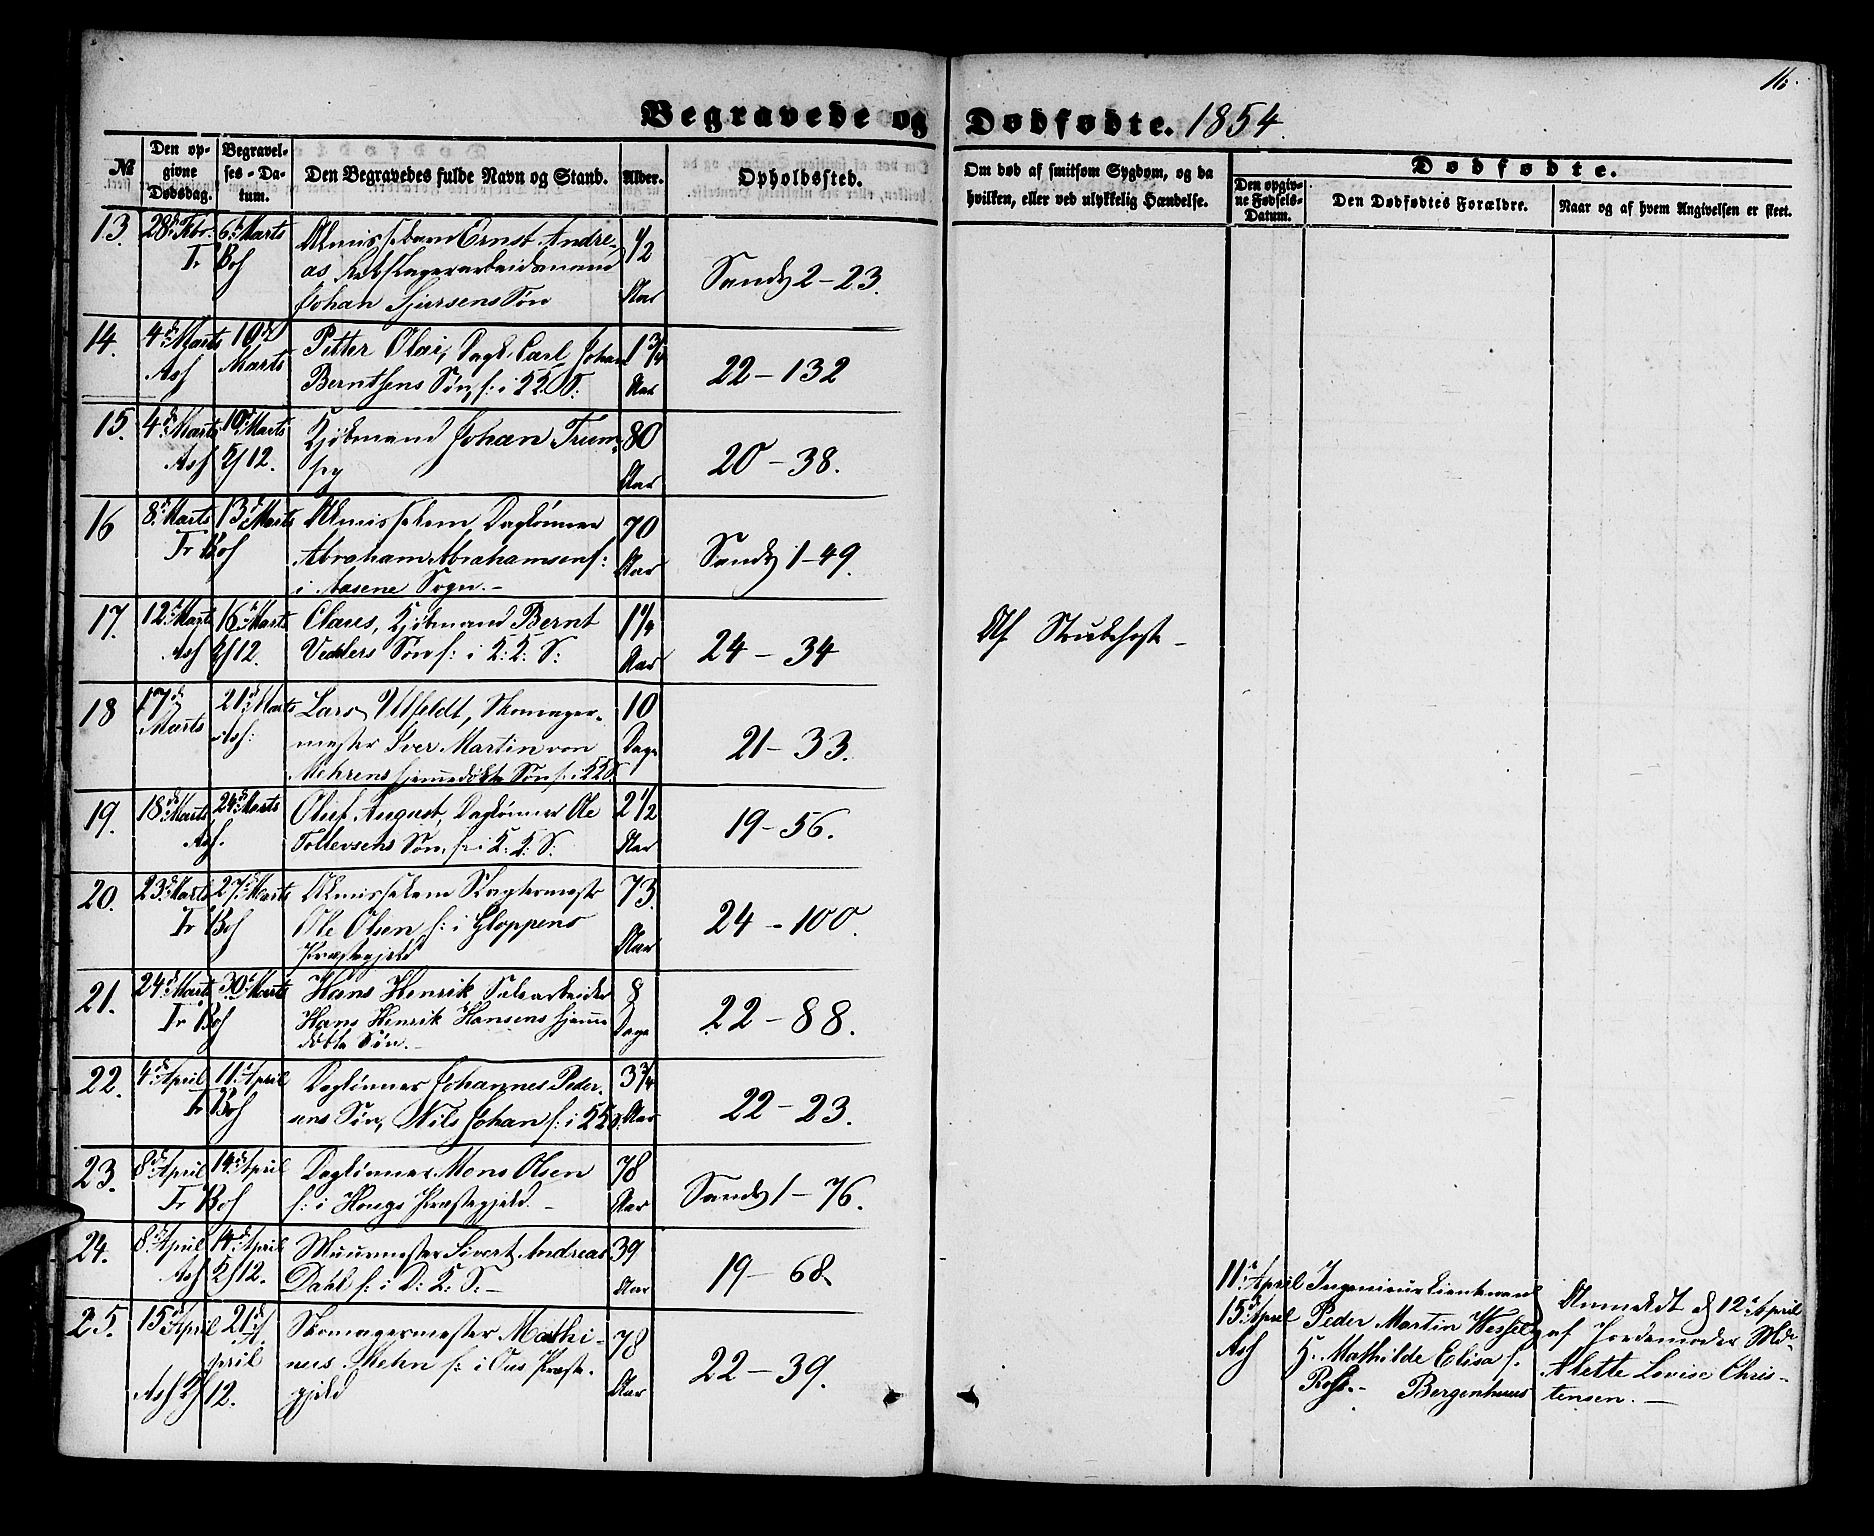 16.
Begravede og Dødfødte. 1854.
№
Den op-
givne
Dødsdag.
Begravel-
ses-Da-
tum.
Den Begravedes fulde Navn og Stand.
Alder.
Opholdssted.
Om død af smitsom Sygdom, og da
hvilken, eller ved ulykkelig Hændelse.
Dødfødte.
Den opgiv-
ne Fødsels-
Datum.
Den Dødfødtes Forældre.
Naar og af hvem Angivelsen er skeet.
13. 28de Fbr. 6te Marts Almisselem Ernst Andre- 1/2
Fr Bof as Arbeidsmand Aar Sandv 2 - 23.
Johan Sjursens Søn
14. 4de Marts 10de Petter Olai, Dagl. Carl Johan 1 3/4
Asf Marts Berntsens Søn, f: i K. K. S: Aar 22 - 132
15. 4de Marts 10de Marts Kjøbmand Johan Trum- 80
Asf K/12. py Aar 20 - 38.
16 8de Marts 13de Marts Almisselem Daglønner 70
Fr Bof Abraham Abrahamsen f: Aar Sandv 1 - 49.
i Aasene Sogn. -
17. 12te Marts 16de Marts Claus, Kjøbmand Bernt 1 1/4
Asf K/12. Vedelers Søn f: i K: K: S: Aar 24 - 34 Af Strubehoste -
18 17de 21de Marts Lars Ulfeldt, Skomager- 10
Marts Asf: mester Iver Martin von Dage 21 - 33.
Mehrens hjemmedøbte Søn f: i K K S.
19. 18de Marts 24de Marts Oluf August, Daglønner Ole 2 1/2
Asf. Tollevsens Søn, f: i K: K: S: Aar 19 - 56.
20. 23de Marts 27de Marts Almisselem Slagtermester 73.
Fr Bof Ole Olsen f: i Gloppens Aar 24 - 100.
Præstegjeld
21. 24de Marts 30de Marts Hans Henrik, arbeider 8
Fr Bof Hans Henrik Hansens hjemme Dage 22 - 88.
døbte Søn. -
22. 4de April 11te April Daglønner Johannes Peder- 3 3/4
Fr Bof sens Søn, Nils Johan f: i K K S. Aar 22 - 23.
23. 8de April 14de April Daglønner Mons Olsen 78
Fr Bof f: i Hougs Præstegjeld. - Aar Sandv 1 - 76.
24. 8de April 14de April Muurmester Sivert Andreas 39
Asf K/12. Dahl f: i D: K: S. - Aar 19 - 68.
25. 15de April 21de A- Skomagermester Mathi- 78
pril nus f: i Ous Præste- Aar 22 - 39.
Asf K/12. gjeld
11te April Ingenieurlieutnant Anmeldt d 12te April
15de April Peder Martin Wessel af Jordemoder Md-
Asf H. Mathilde Elisa f. Alette Lovise Chris-
Rofs. - Bergenhuus tensen. -